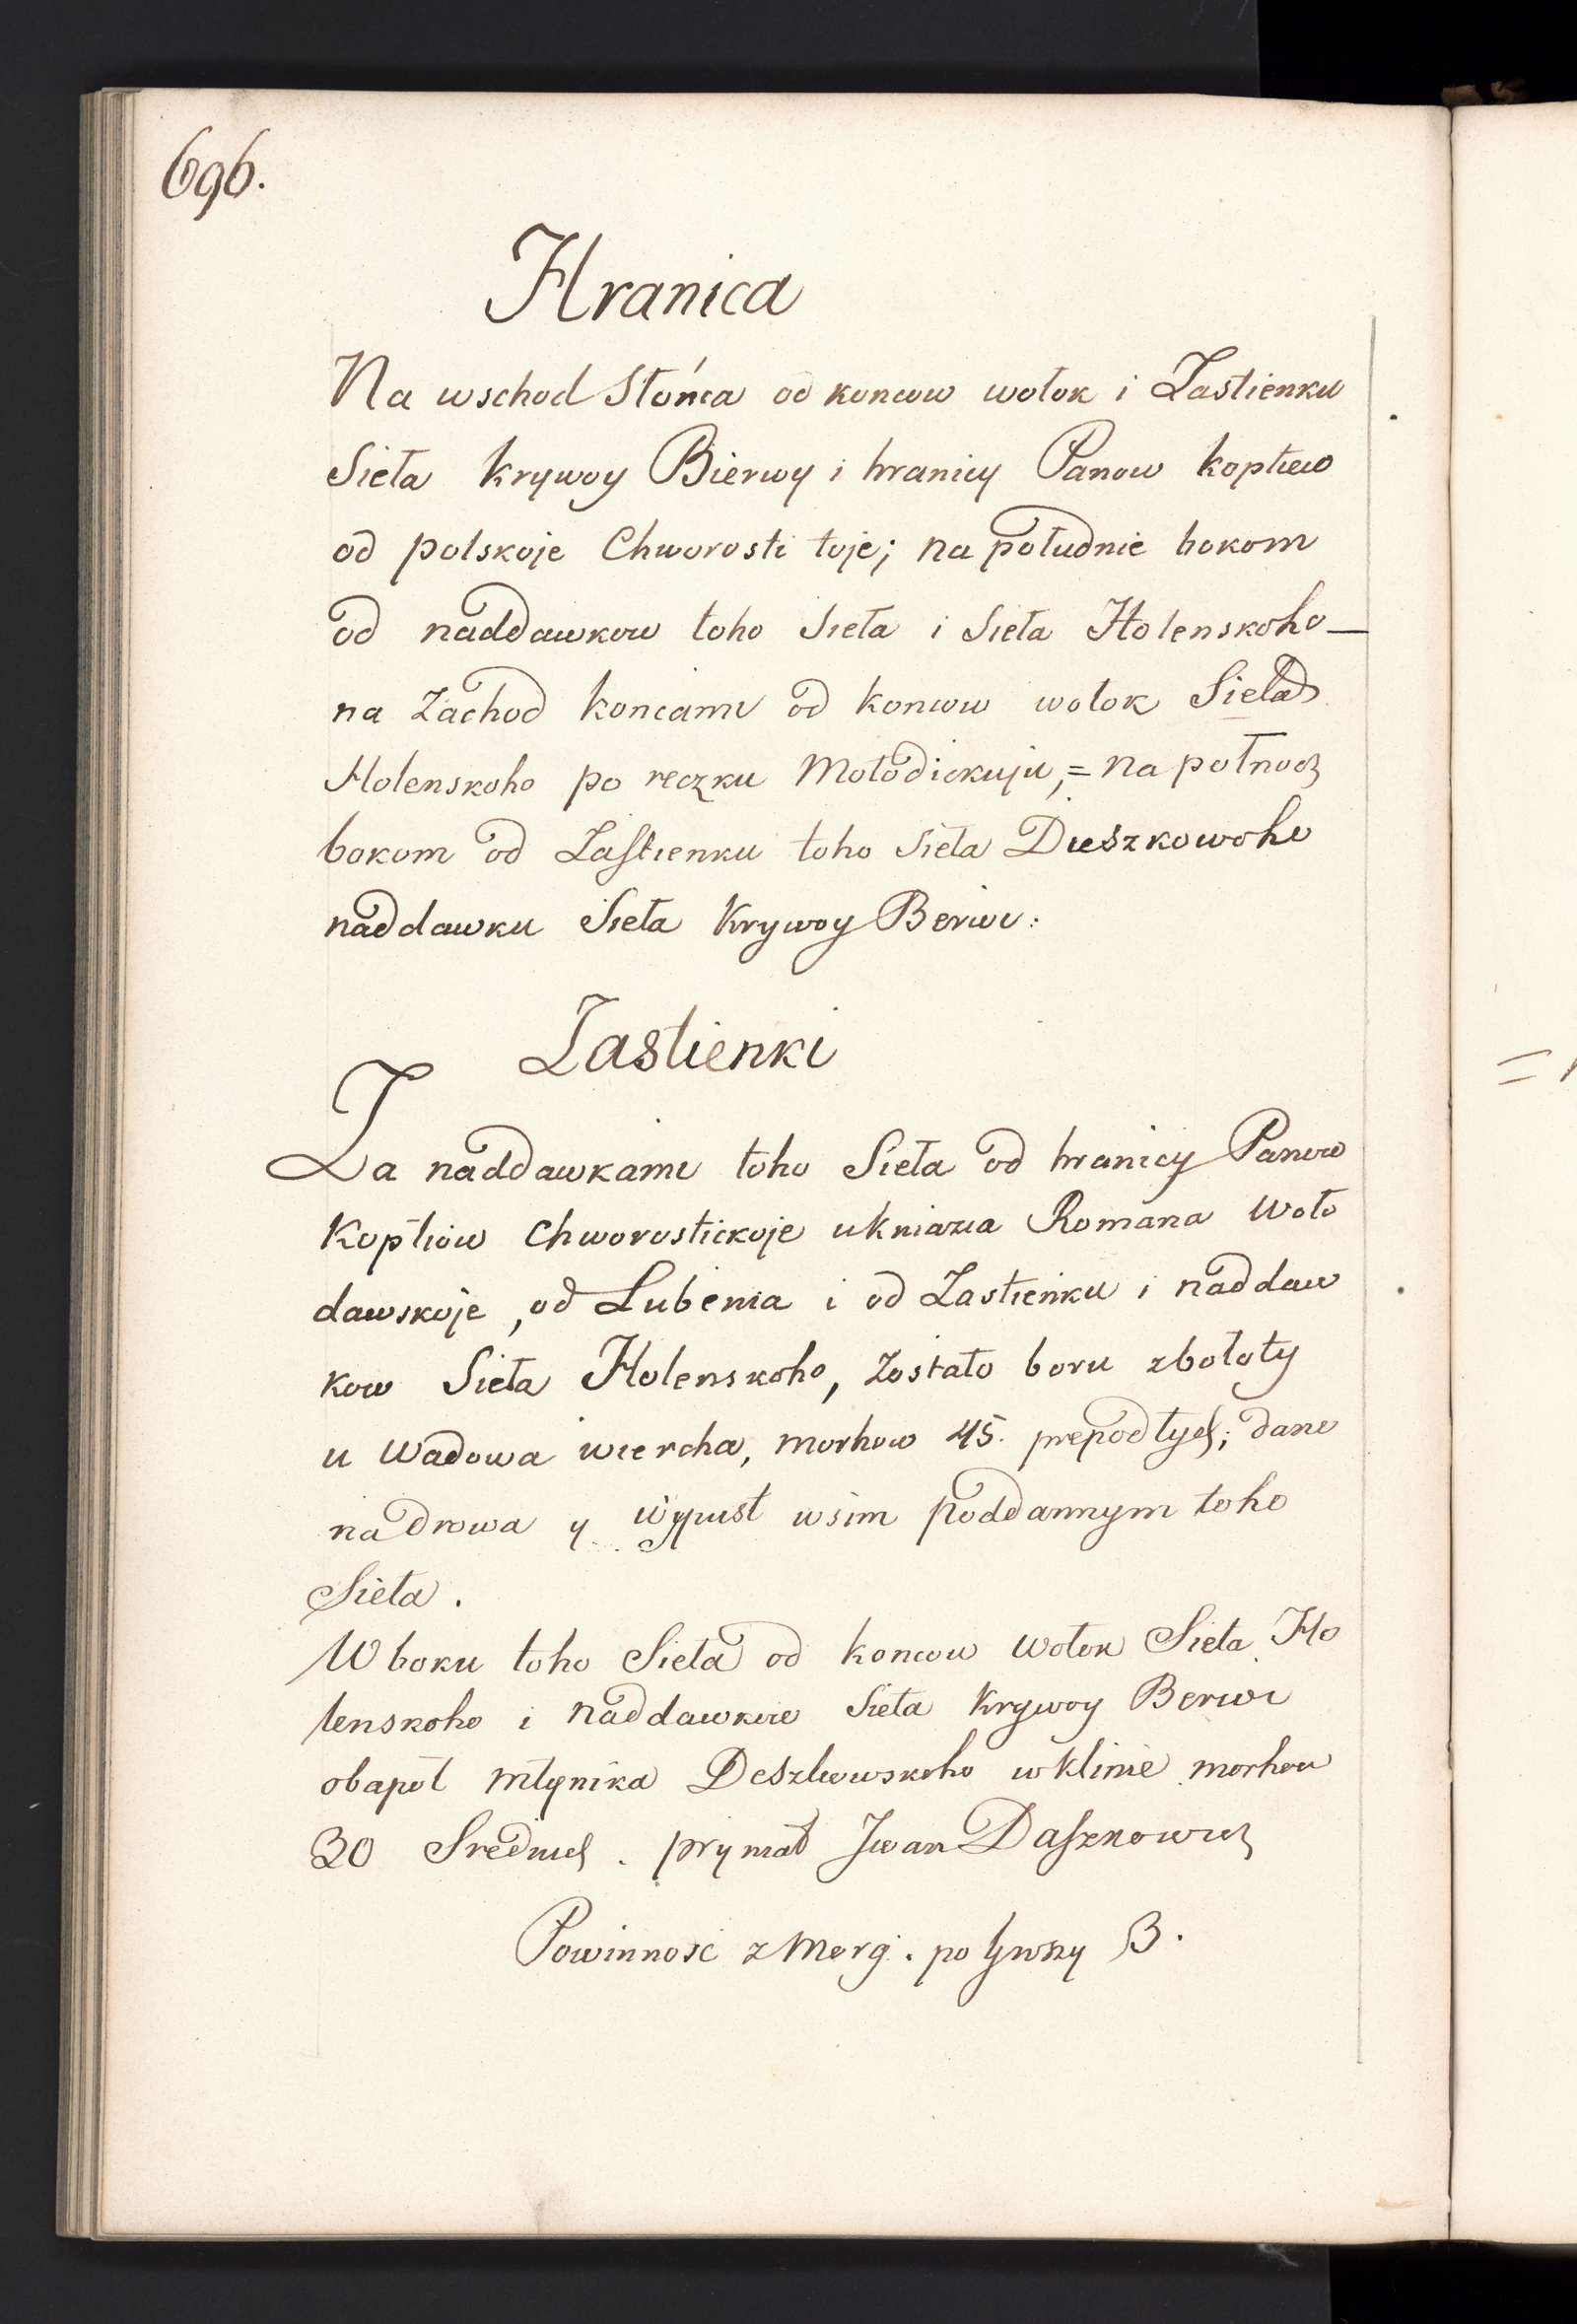 696.
Hranica
Na wschod Słońca od koncow wołok i Zastienku
Sieła Krywoy Bierwy i hranicy Panow koptiew
od polskoje Chworosti toje; na południe bokom
od naddawkow toho Sieła i Sieła Holenskoho —
na Zachod koncami od koncow wołok Sieła
Holenskoho po reczku Mołodickuju, = na połnocz
bokom od Zastienku toho Sieła Dieszkowoho
naddawku Sieła Krywoy Berwi:
Zastienki
Za naddawkami toho Sieła od hranicy Panow
Koptiow Chworostickoje u kniazia Romana Woło
dawskoje, od Lubenia i od Zastienku i naddaw
kow Sieła Holenskoho, zostało boru z bołoty
u Wadowa wiercha, morhow 45. prepodłych; dano
na drowa y wypust wsim poddannym toho
Sieła.
W boku toho Sieła od koncow wołok Sieła Ho
lenskoho i naddawkow Sieła Krywoy Berwi
obapoł młynika Deszkowskoho w klinie morhow
30 Srednich. prymał Jwan Daszkowicz
Powinnosc z Morg. po hroszy 3.